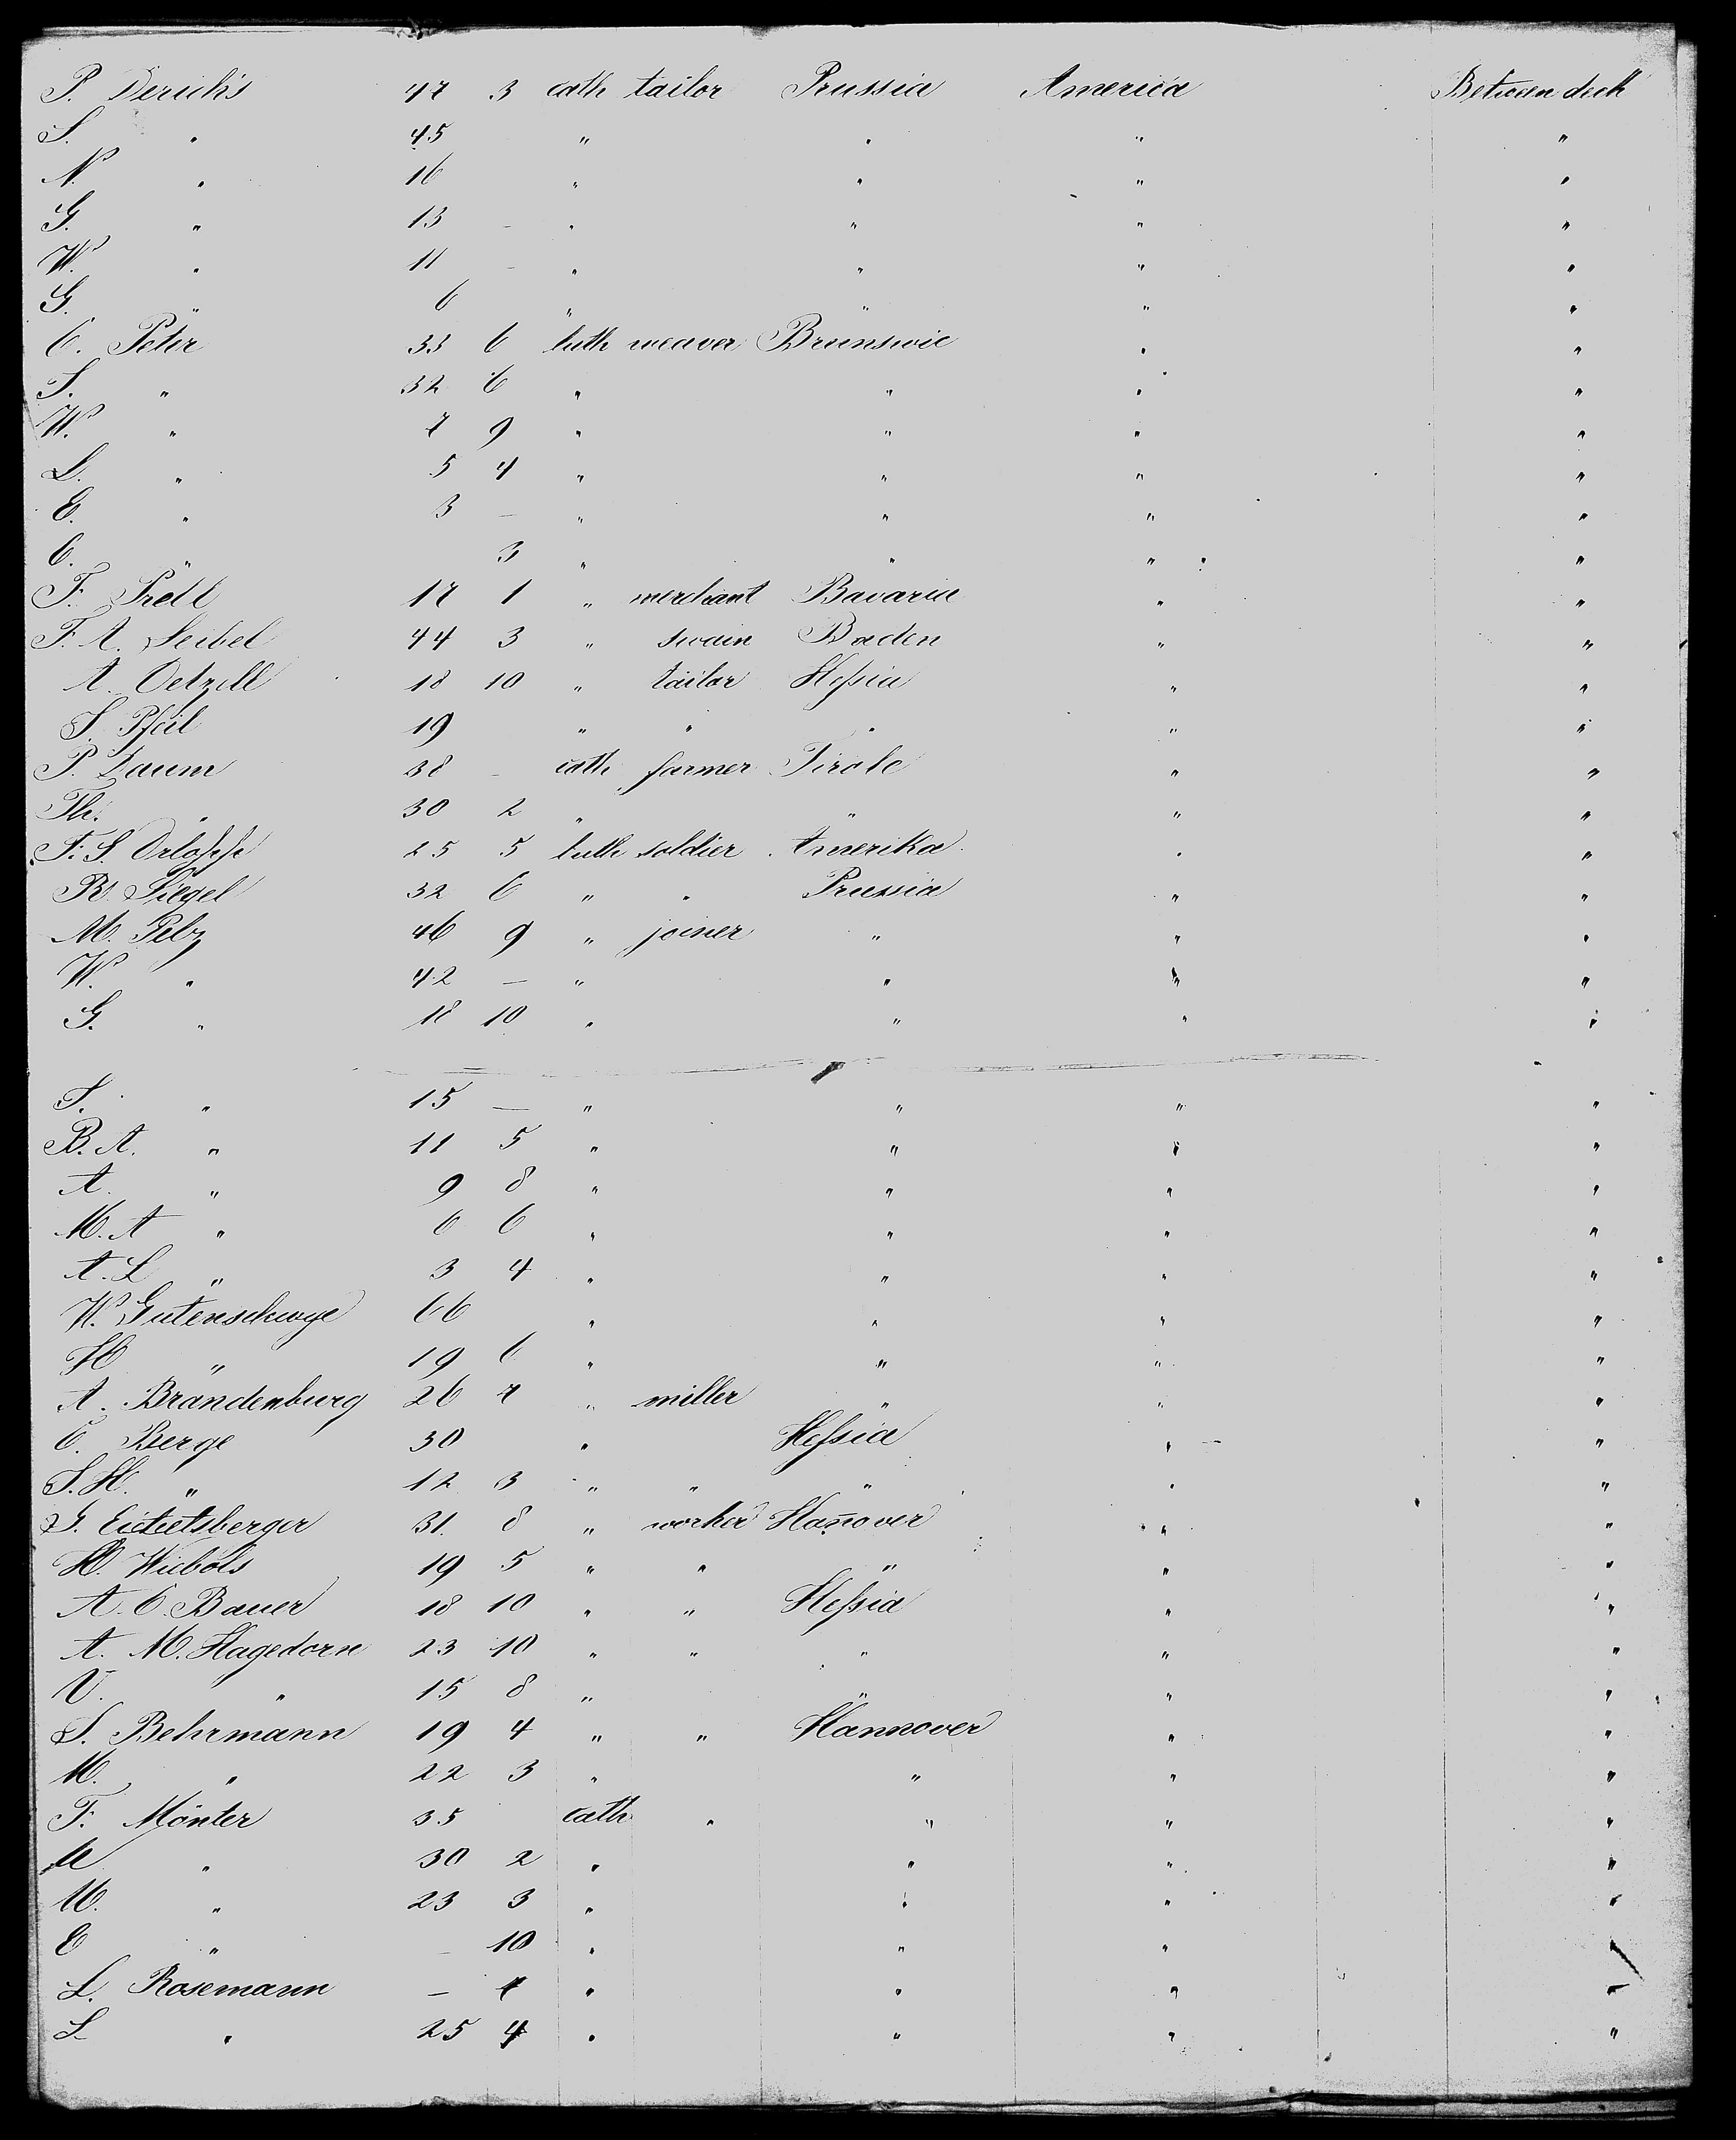 P. Derichs 47 3 cath tailor Prussia America Between deck
S. " 45 " " " "
N. " 16 " " " "
G. " 13 - " " " "
W. " 11 - " " " "
G. " 6 " " " "
C. Peter 33 6 luth weaver Brunswic " "
S. " 32 6 " " " "
W. " 7 9 " " " "
L. " 5 4 " " " "
E. " 3 — " " " "
C. " 3 " " " "
F. Predl 17 1 " merchant Bavaria " "
F. A. Seibel 44 3 " swain Baden " "
A. Oetzell 18 10 " tailor Heſsia " "
S. Pfeil 19 " " " " "
P. Daum 38 - cath farmer Tirole " "
Th. " 30 2 " " " "
F. S. 25 5 luth soldier Amerika " "
R. Siegel 32 6 " " Prussia " "
M. Pelz 46 9 " joiner " " "
W. " 42 — " " " "
G. " 18 10 " " " "
S. " 15 — " " " "
B. A. " 11 5 " " " "
A. " 9 8 " " " "
M. A " 6 6 " " " "
A. L " 3 4 " " " "
W. Gutenschwge 66 " " " "
H " 19 6 " " " "
A. Brandenburg 26 7 " miller " " "
C. Berge 30 " Heſsia " "
S. H. " 12 3 " " " " "
G. 31 8 " worker Hañover " "
H. Wiebols 19 5 " " " " "
A. C. Bauer 18 10 " " Heſsia " "
A. M. Hagedorn 23 10 " " " " "
V. " 15 8 " " " "
S. Behrmann 19 4 " " Hannover " "
M. " 22 3 " " " "
F. Mönter 35 cath " " " "
" 30 2 " " " "
M. " 23 3 " " " "
E " - 10 " " " "
L. Rosemann — 7 " " " "
S " 25 4 " " " "